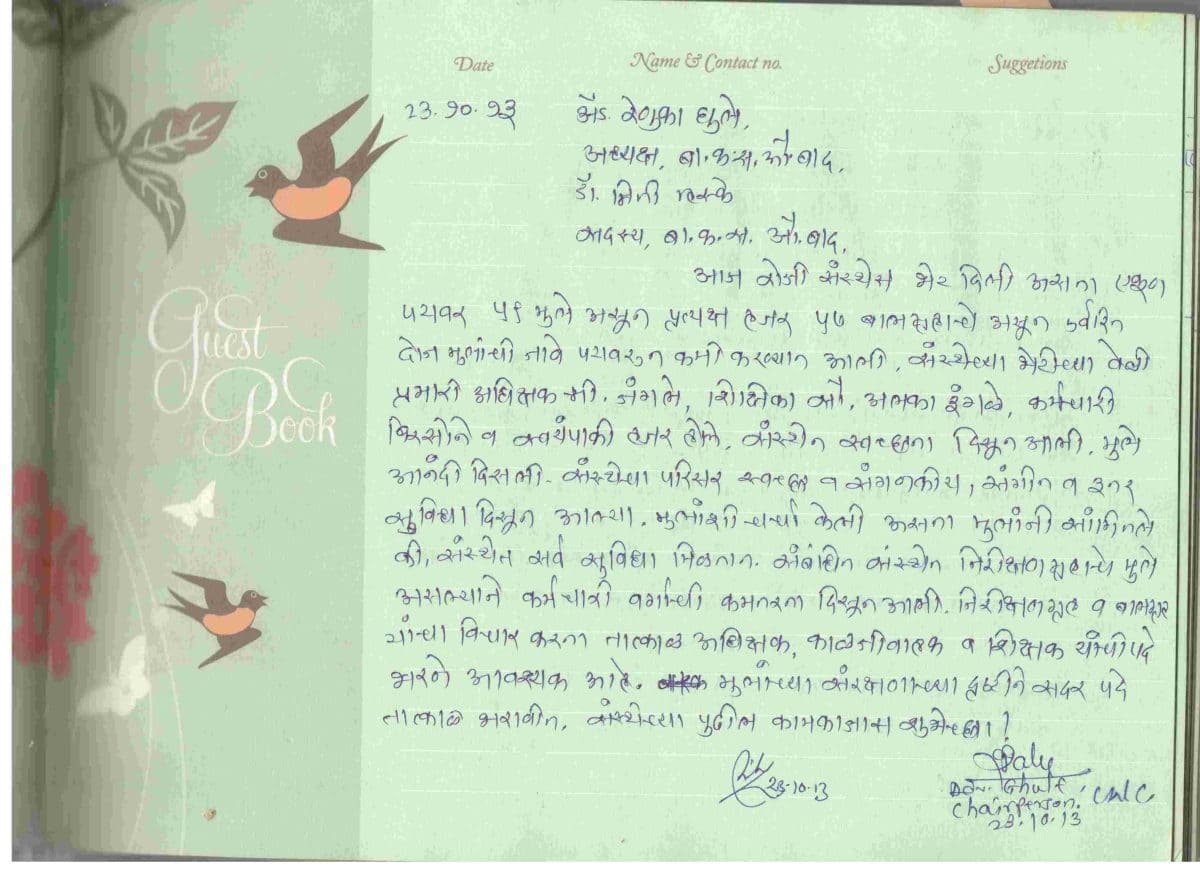 Date Name & Contact no. Suggetions
23.१०.१३ अॅड. रेणुका घुले,
अध्यक्ष, बा.क.स. औ.बाद,
डॉ. मिनी म्हस्के
सदस्य, बा.क.स. औ.बाद,
आज रोजी संस्थेस भेट दिली असता एकूण
पटावर ५९ मुले असून प्रत्यक्ष हजर ५७ बालगृहाचे असून उर्वरित
दोन मुलांची नावे पटावरुन कमी करण्यात आली. संस्थेच्या भेटीच्या वेळी
प्रभारी अधिक्षक श्री. जंगले, शिक्षिका सौ. अलका इंगळे, कर्मचारी
व स्वयंपाकी हजर होते. संस्थेत स्वच्छता दिसून आली. मुले
आनंदी दिसली. संस्थेचा परिसर स्वच्छ व संगणकीय, संगीत व इतर
सुविधा दिसून आल्या. मुलांशी चर्चा केली असता मुलांनी सांगितले
की, संस्थेत सर्व सुविधा मिळतात. संबंधित संस्थेत निरीक्षणगृहाचे मुले
असल्याने कर्मचारी वर्गाची कमतरता दिसून आली. निरीक्षणगृह व बालगृह
यांचा विचार करता तात्काळ अधिक्षक, काळजीवाहक व शिक्षक यांची पदे
भरणे आवश्यक आहे. मुलांच्या संरक्षणाच्या दृष्टीने सदर पदे
तात्काळ भरावीत. संस्थेच्या पुढील कामकाजास शुभेच्छा!
Guest
Book
23-10-13
Adv. Ghule,
Chairperson, CWC
23.10.13